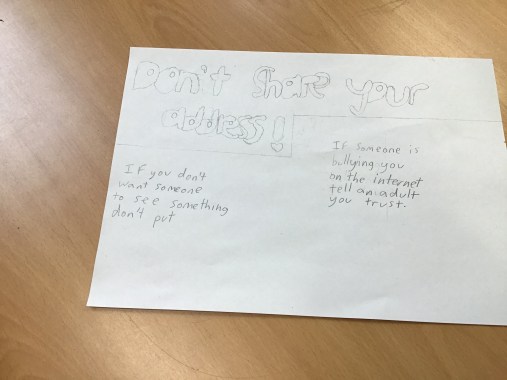 Don't share your
address!
If you don't
want someone
to see something
don't put
If someone is
bullying you
on the internet
tell an adult
you trust.